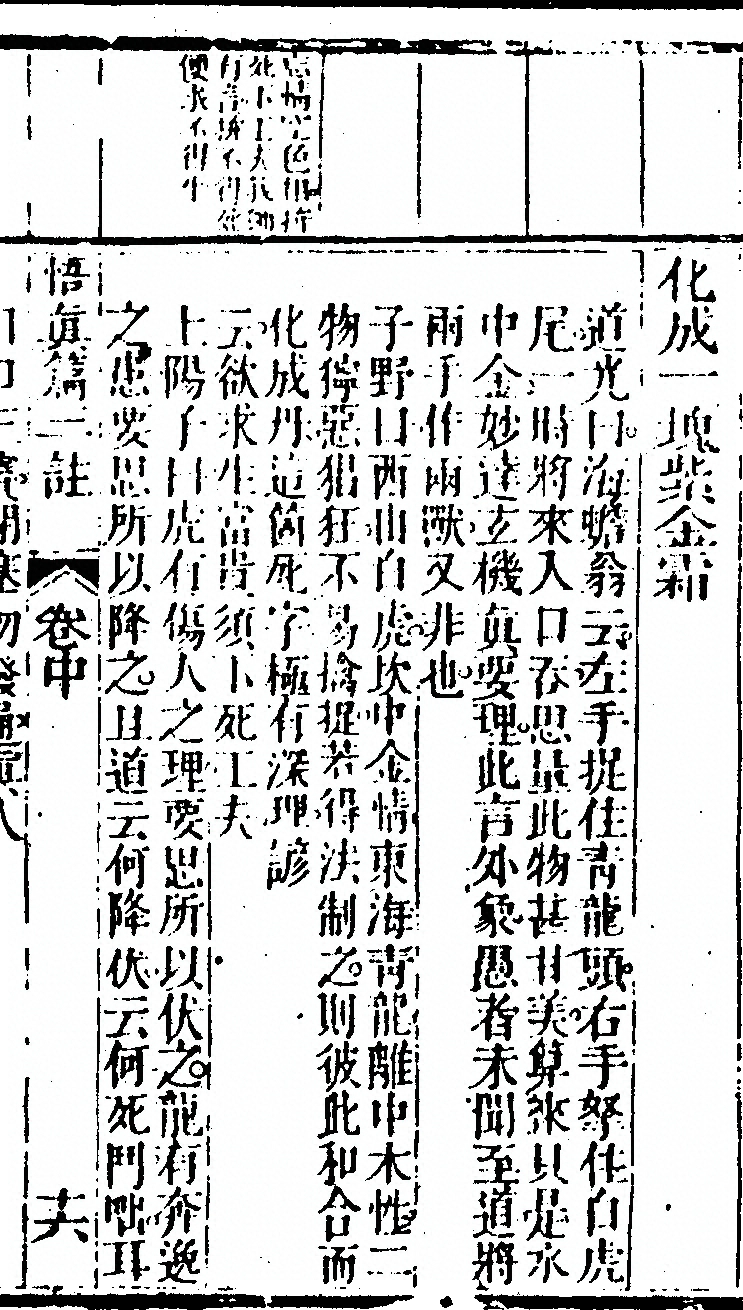 化成一塊紫金霜
道光曰海蟾翁云左手捉住青龍頭右手拏住白虎
尾一時將來入口吞思量此物甚甘美算來只是水
中金妙達玄機真要理此言外象愚者未聞至道將
兩手作兩獸又非也
子野曰西山白虎坎中金情東海青龍離中木性二
物獰惡猖狂不易擒捉若得法制之則彼此和合而
化成丹這箇死字極有深理諺
云欲求生富貴須下死工夫
上陽子曰虎有傷人之理要思所以伏之龍有奔逸
之患要思所以降之且道云何降伏云何死鬥咄耳
悟真篇三註 卷中 十六
死下工夫
便求不得生